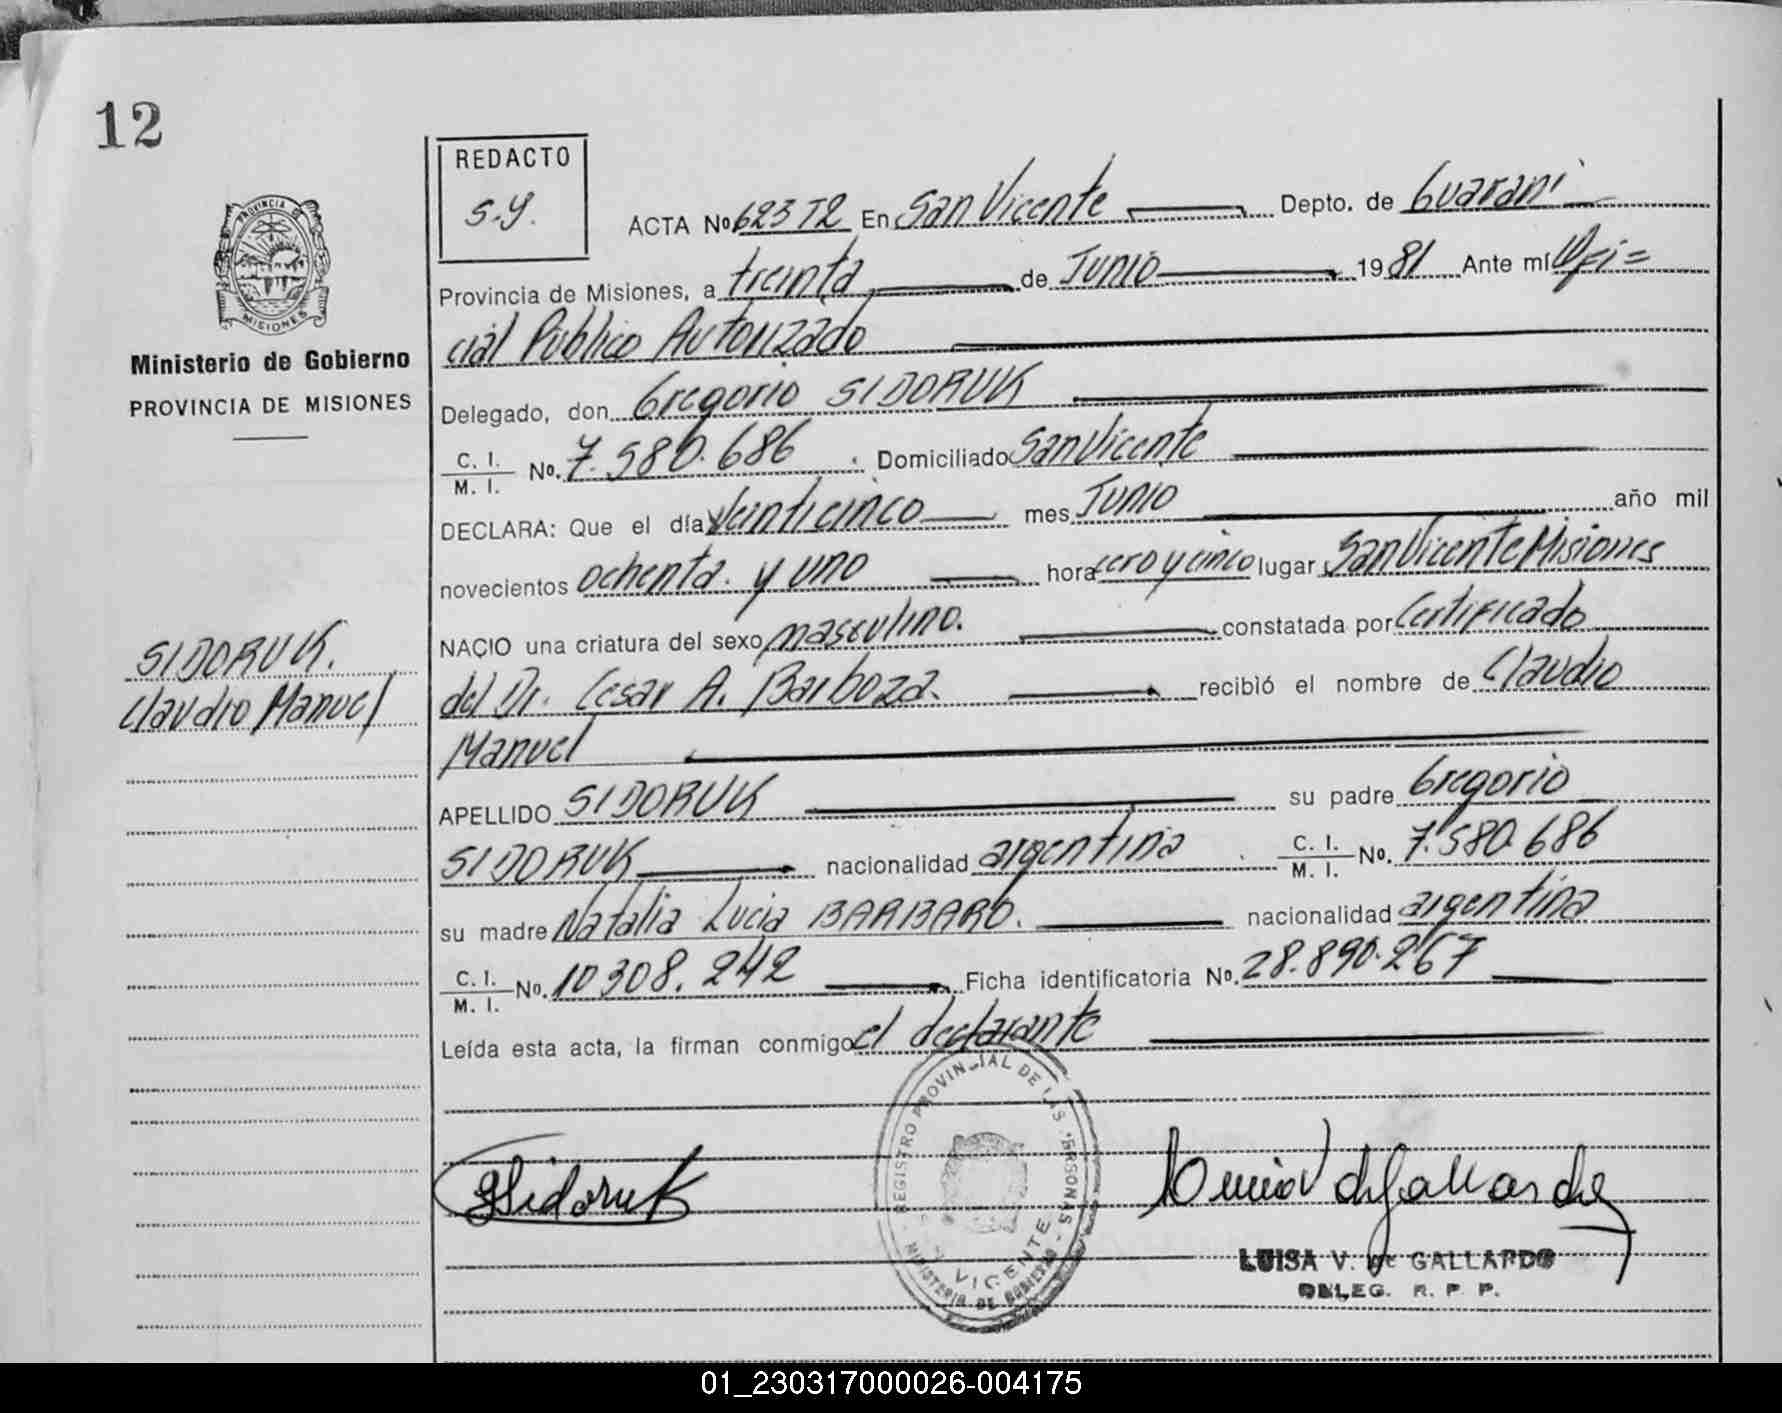 12
REDACTO
S.Y.
ACTA No 623 T2 En San Vicente Depto. de Guaraní
Provincia de Misiones, a treinta de Junio 1981 Ante mí Ofi=
cial Público Autorizado
Delegado, don Gregorio SIDORUK
C. I. / M. I. No. 7.580.686 . Domiciliado San Vicente
DECLARA: Que el día Veinticinco mes Junio año mil
novecientos ochenta y uno hora cero y cinco lugar San Vicente Misiones
NACIO una criatura del sexo masculino. constatada por Certificado
del Dr. Cesar A. Barboza. recibió el nombre de Claudio
Manuel
APELLIDO SIDORUK su padre Gregorio
SIDORUK nacionalidad argentina . C. I. / M. I. No. 7.580.686
su madre Natalia Lucia BARBARO. nacionalidad argentina
C. I. / M. I. No. 10308.242 Ficha identificatoria No. 28.890.267
Leída esta acta, la firman conmigo el declarante
PROVINCIA DE
MISIONES
Ministerio de Gobierno
PROVINCIA DE MISIONES
SIDORUK.
Claudio Manuel
Sidoruk
REGISTRO PROVINCIAL DE LAS PERSONAS
MINISTERIO DE GOBIERNO
S. VICENTE
Luisa V de Gallardo
LUISA V. de GALLARDO
DELEG. R. P. P.
01_230317000026-004175